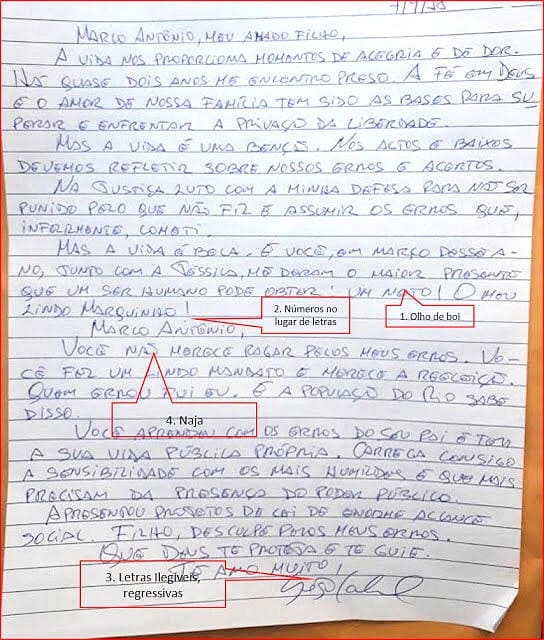 7/9/18
MARCO ANTÔNIO, MEU AMADO FILHO,
A VIDA NOS PROPORCIONA MOMENTOS DE ALEGRIA E DE DOR.
HÁ QUASE DOIS ANOS ME ENCONTRO PRESO. A FÉ EM DEUS
E O AMOR DE NOSSA FAMÍLIA TEM SIDO AS BASES PARA SU
PERAR E ENFRENTAR A PRIVAÇÃO DA LIBERDADE.
MAS A VIDA É UMA BENÇÃ. NOS ALTOS E BAIXOS
DEVEMOS REFLETIR SOBRE NOSSOS ERROS E ACERTOS.
NA JUSTIÇA LUTO COM A MINHA DEFESA PARA NÃO SER
PUNIDO PELO QUE NÃO FIZ E ASSUMIR OS ERROS QUE,
INFELIZMENTE, COMETI.
MAS A VIDA É BELA. E VOCÊ, EM MARÇO DESSE A-
NO, JUNTO COM A JÉSSICA, ME DERAM O MAIOR PRESENTE
QUE UM SER HUMANO PODE OBTER: UM NETO! O MEU
LINDO MARQUINHO!
2. Números no
lugar de letras
1. Olho de boi
MARCO ANTÔNIO,
VOCÊ NÃO MERECE PAGAR PELOS MEUS ERROS. VO-
CÊ FEZ UM LINDO MANDATO E MERECE A REELEIÇÃO.
QUEM ERROU FUI EU. E A POPULAÇÃO DO RIO SABE
DISSO.
4. Naja
VOCÊ APRENDEU COM OS ERROS DO SEU PAI E TEM
A SUA VIDA PÚBLICA PRÓPRIA. CARREGA CONSIGO
A SENSIBILIDADE COM OS MAIS HUMILDES E QUE MAIS
PRECISAM DA PRESENÇA DO PODER PÚBLICO.
APRESENTOU PROJETOS DE LEI DE ENORME ALCANCE
SOCIAL. FILHO, DESCULPE PELOS MEUS ERROS.
QUE DEUS TE PROTEJA E TE GUIE.
TE AMO MUITO!
3. Letras Ilegíveis,
regressivas